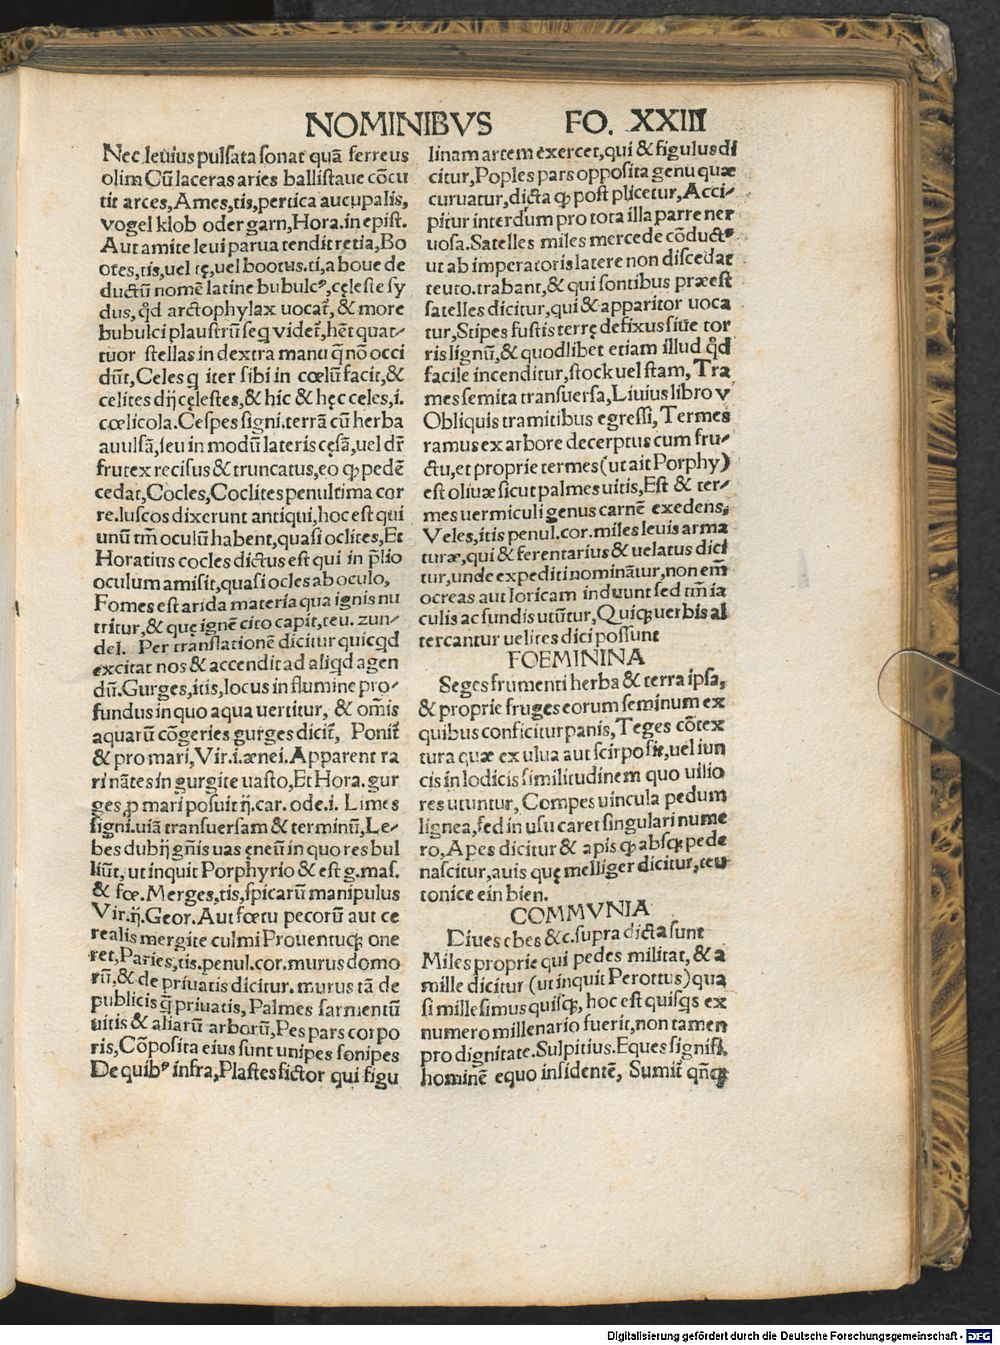 NOMINIBVS FO. XXIII
Nec leuius pulsata sonat quã ferreus
olim Cũ laceras aries ballistaue cõcu
tit arces, Ames, tis, pertica aucupalis,
vogel klob oder garn, Hora. in epist.
Aut amite leui parua tendit retia, Bo
otes, tis, uel tę, uel bootus. ti, a boue de
ductũ nomẽ latine bubulcꝰ, cęleste sy
dus, qd̃ arctophylax uocat̃, & more
bubulci plaustrũ seq̃ videt̃, hẽt quat⸗
tuor stellas in dextra manu q̃ nõ occi
dũt, Celes q iter sibi in cœlũ facit, &
celites dij cęlestes, & hic & hęc celes, i.
cœlicola. Cespes signi. terrã cũ herba
auulsã, seu in modũ lateris cęsã, uel dr̃
frutex recisus & truncatus, eo ꝙ pedẽ
cedat, Cocles, Coclites penultima cor
re. luscos dixerunt antiqui, hoc est qui
unũ tm̃ oculũ habent, quasi oclites, Et
Horatius cocles dictus est qui in p̃lio
oculum amisit, quasi ocles ab oculo,
Fomes est arida materia qua ignis nu
tritur, & quę ignẽ cito capit, teu. zun⸗
del. Per translationẽ dicitur quicqd
excitat nos & accendit ad aliqd agen
dũ. Gurges, itis, locus in flumine pro⸗
fundus in quo aqua uertitur, & om̃is
aquarũ cõgeries gurges dicit̃, Ponit̃
& pro mari, Vir. i. ænei. Apparent ra
ri nãtes in gurgite uasto, Et Hora. gur
ges p mari posuit ij. car. ode. i. Limes
signi. uiã transuersam & terminũ, Le⸗
bes dubij gñis uas ęneũ in quo res bul
liũt, ut inquit Porphyrio & est g. mas.
& fœ. Merges, tis, spicarũ manipulus
Vir. ij. Geor. Aut fœtu pecorũ aut ce
realis mergite culmi Prouentuqꝫ one
ret, Paries, tis. penul. cor. murus domo
rũ, & de priuatis dicitur. murus tã de
publicis q̃ priuatis, Palmes sarmentũ
uitis & aliarũ arborũ, Pes pars corpo
ris, Cõposita eius sunt unipes sonipes
De quibꝰ infra, Plastes fictor qui figu
linam artem exercet, qui & figulus di
citur, Poples pars opposita genu quæ
curuatur, dicta ꝙ post plicetur, Acci⸗
pitur interdum pro tota illa parte ner
uosa. Satelles miles mercede cõductꝰ
ut ab imperatoris latere non discedat
teuto. trabant, & qui sontibus præest
satelles dicitur, qui & apparitor uoca
tur, Stipes fustis terrę defixus siue tor
ris lignũ, & quodlibet etiam illud qd̃
facile incenditur, stock uel stam, Tra
mes semita transuersa, Liuius libro v
Obliquis tramitibus egressi, Termes
ramus ex arbore decerptus cum fru⸗
ctu, et proprie termes (ut ait Porphy)
est oliuæ sicut palmes uitis, Est & ter⸗
mes uermiculi genus carnẽ exedens,
Veles, itis penul. cor. miles leuis arma
turæ, qui & ferentarius & uelatus dici
tur, unde expediti nominãtur, non em̃
ocreas aut loricam induunt sed tm̃ ia
culis ac fundis utũtur, Quiqꝫ uerbis al
tercantur uelites dici possunt
FOEMININA
Seges frumenti herba & terra ipsa,
& proprie fruges eorum seminum ex
quibus conficitur panis, Teges cõtex
tura quæ ex ulua aut scirpo fit, uel iun
cis in lodicis similitudinem quo uilio
res utuntur, Compes uincula pedum
lignea, sed in usu caret singulari nume
ro, Apes dicitur & apis ꝙ absqꝫ pede
nascitur, auis quę melliger dicitur, teu
tonice ein bien.
COMMVNIA
Diues ebes &c. supra dicta sunt
Miles proprie qui pedes militat, & a
mille dicitur (ut inquit Perottus) qua
si millesimus quisqꝫ, hoc est quisqs ex
numero millenario fuerit, non tamen
pro dignitate. Sulpitius. Eques signifi.
hominẽ equo insidentẽ, Sumit̃ qñqꝫ
Digitalisierung gefördert durch die Deutsche Forschungsgemeinschaft - DFG